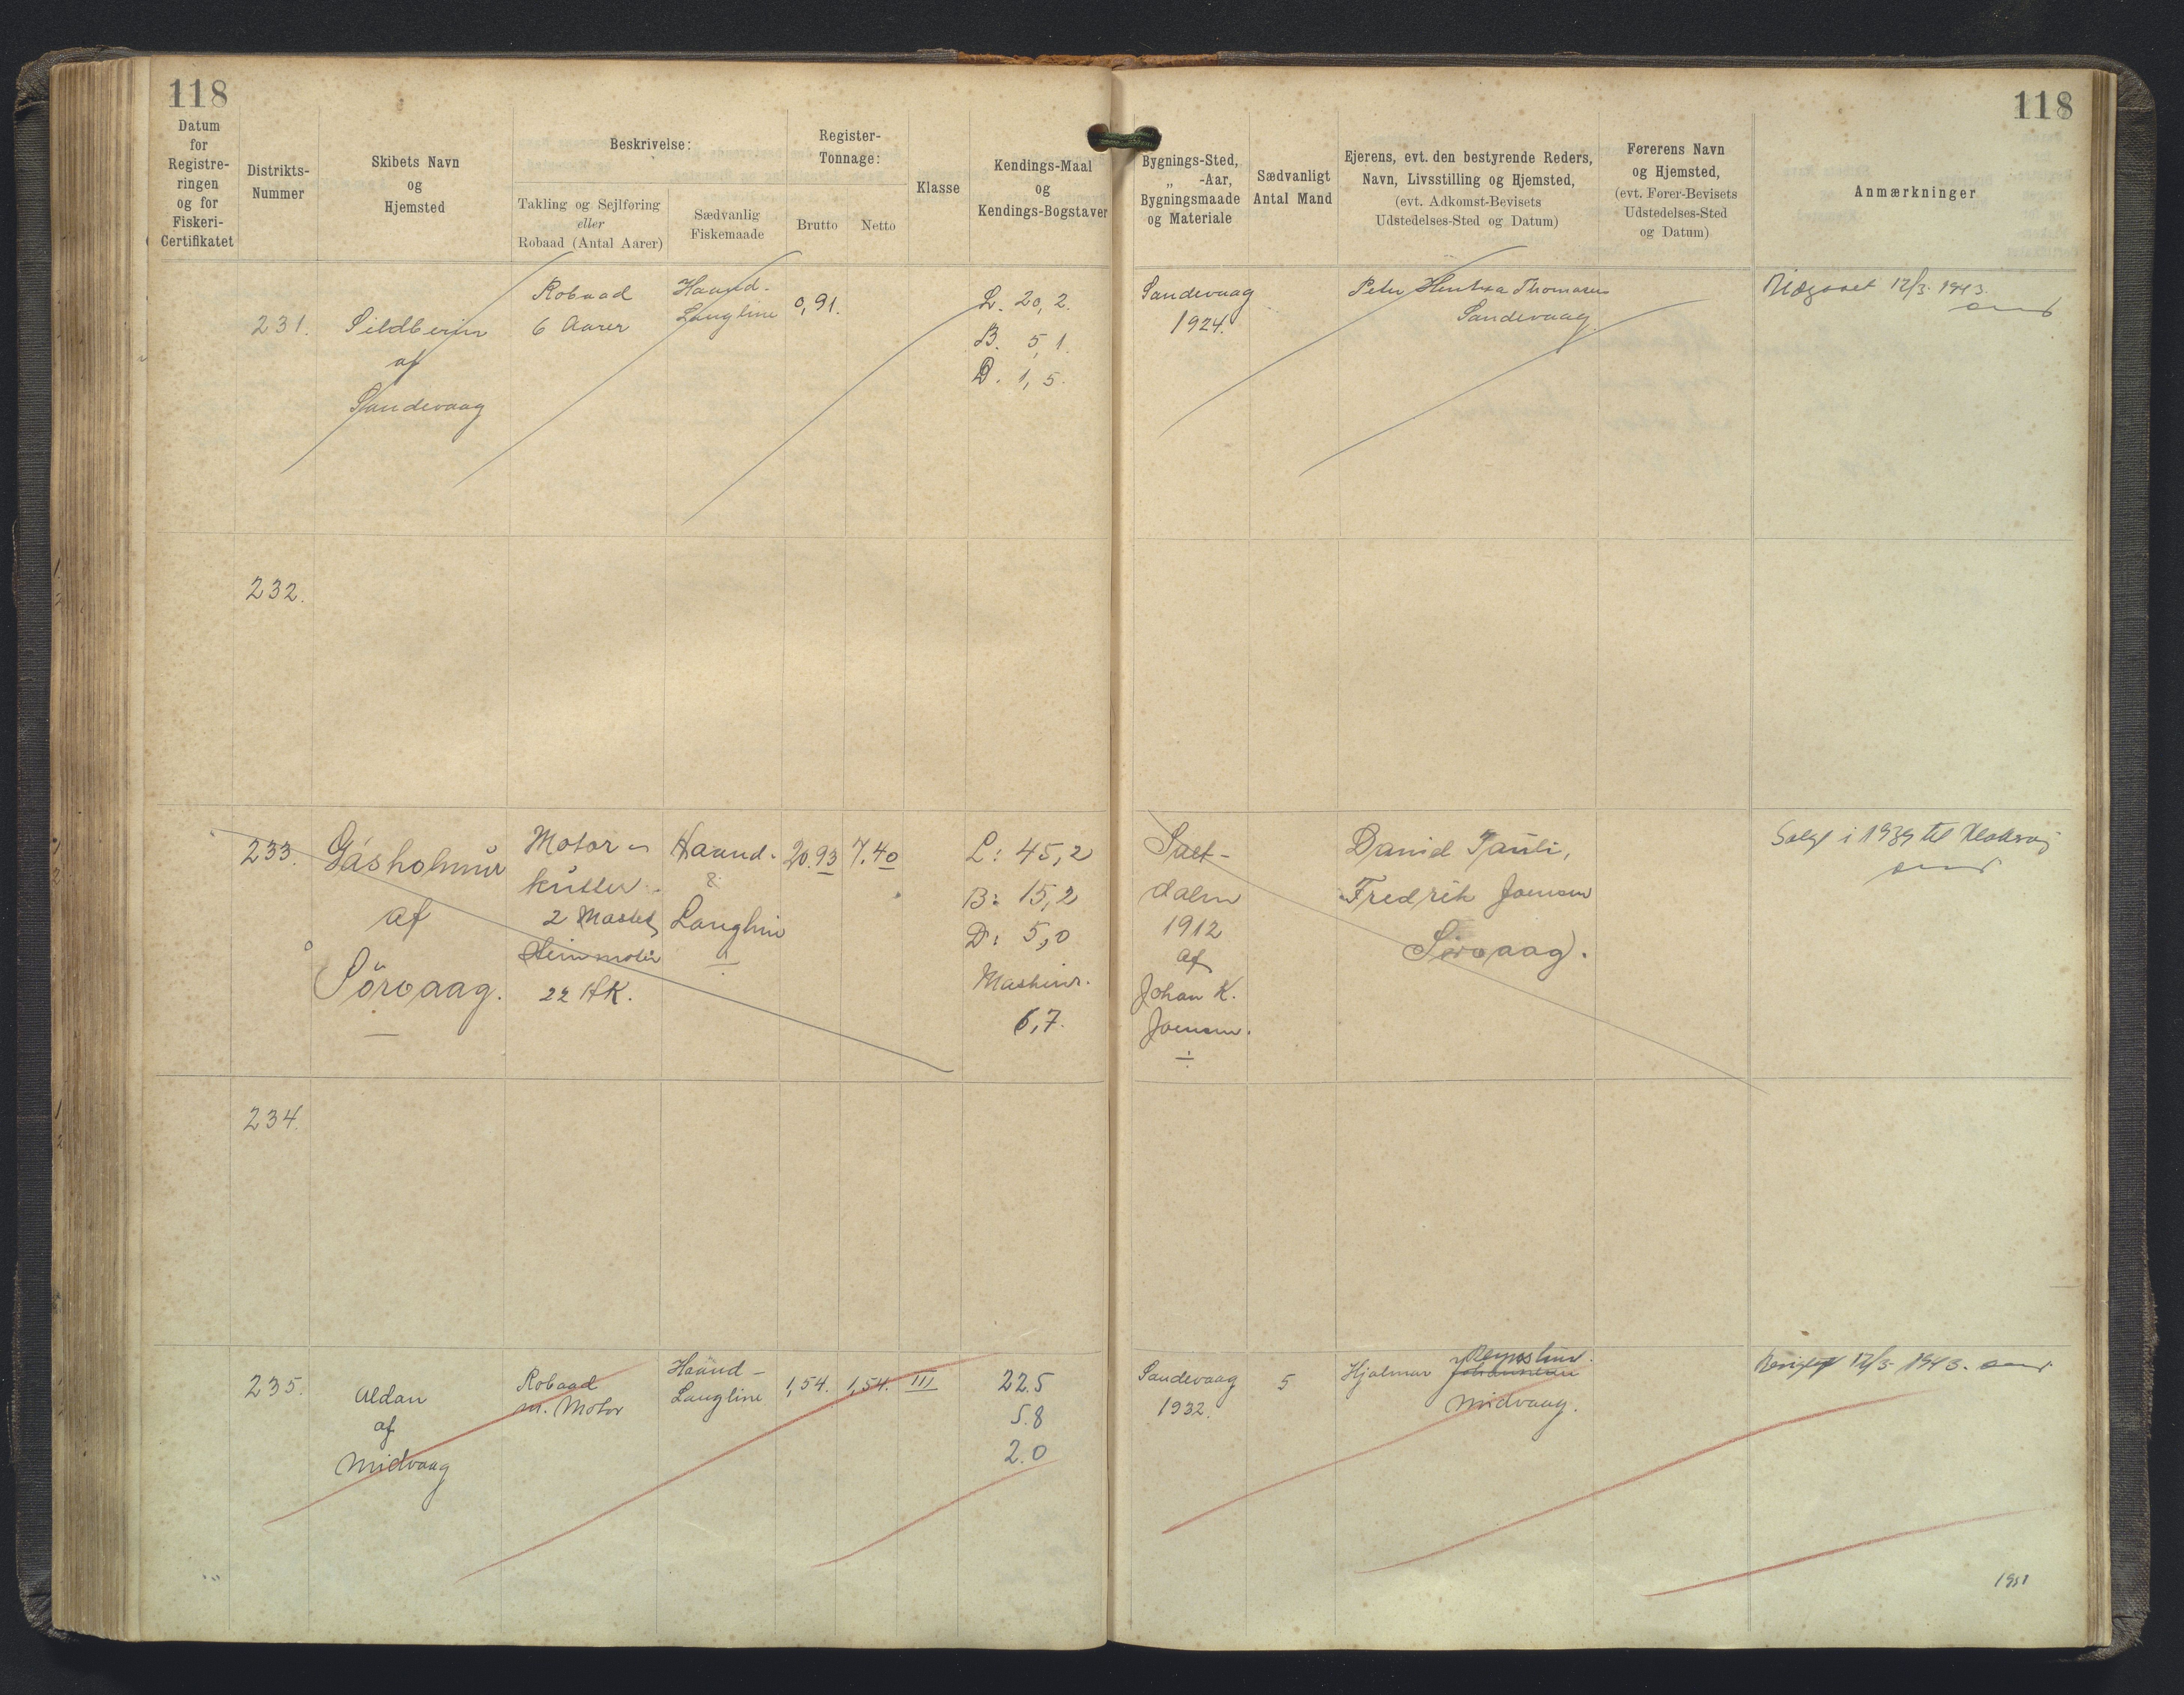 118
118
Datum
for
Registre-
ringen
og for
Fiskeri-
Certifikatet
Distrikts-
Nummer
Skibets Navn
og
Hjemsted
Beskrivelse:
Takling og Sejlføring
eller
Robaad (Antal Aarer)
Sædvanlig
Fiskemaade
Register-
Tonnage:
Brutto
Netto
Klasse
Kendings-Maal
og
Kendings-Bogstaver
Bygnings-Sted,
„ -Aar,
Bygningsmaade
og Materiale
Sædvanligt
Antal Mand
Ejerens, evt. den bestyrende Reders,
Navn, Livsstilling og Hjemsted,
(evt. Adkomst-Bevisets
Udstedelses-Sted og Datum)
Førerens Navn
og Hjemsted,
(evt. Fører-Bevisets
Udstedelses-Sted
og Datum)
Anmærkninger
231.
Sildberin
af
Sandevaag
Robaad
6 Aarer
Haand-
Langline
0,91.
L. 20,2.
B. 5,1.
D. 1,5.
Sandevaag
1924.
Peter Thomasen
Sandevaag.
Udgaaet 12/3. 1943.
232.
233.
Gásholmur
af
Sörvaag.
Motor-
kutter
2 Mastet
22 HK.
Haand-
&
Langline
20.93
7.40
L: 45,2
B: 15,2
D: 5,0
Maskinr.
6,7.
Salt-
dalen
1912
af
Johan K.
Joensen.
David Pauli,
Fredrik Joensen
Sörvaag.
Solgt i 1939 til Klaksvig
234.
235.
Aldan
af
Midvaag
Robaad
m. Motor
Haand-
Langline
1,54.
1,54.
III
22.5
5.8
2.0
Sandevaag
1932.
5
Hjalmar Johannesen
Midvaag.
12/3 1943.
1951